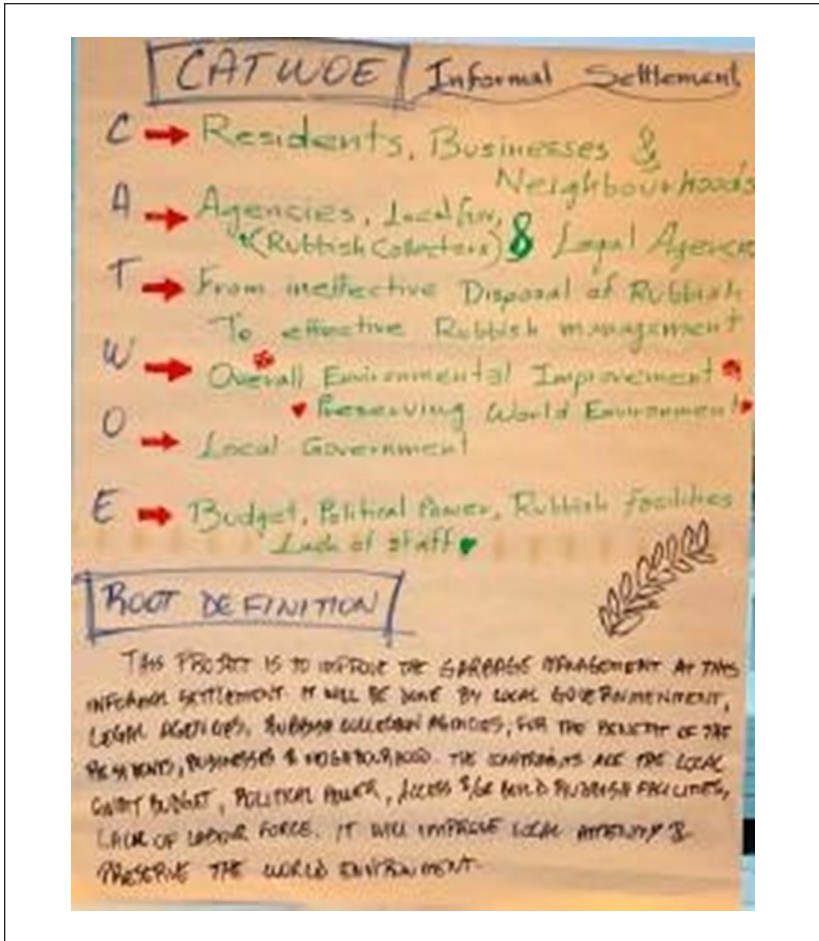 CATWOE Informal Settlement
C → Residents, Businesses &
Neighbourhoods
A → Agencies, Local Gov,
(Rubbish Collectors) & Legal Agencies
T → From ineffective Disposal of Rubbish
To effective Rubbish management
W → Overall Environmental Improvement
Preserving World Environment
O → Local Government
E → Budget, Political Power, Rubbish facilities
Lack of staff
ROOT DEFINITION
THIS PROJECT IS TO IMPROVE THE GARBAGE MANAGEMENT AT THIS
INFORMAL SETTLEMENT. IT WILL BE DONE BY LOCAL GOVERNMENMENT,
LEGAL AGENCIES, RUBBISH COLLECTION AGENCIES, FOR THE BENEFIT OF THE
RESIDENTS, BUSINESSES & NEIGHBOURHOOD. THE CONSTRAINTS ARE THE LOCAL
GOVMT BUDGET, POLITICAL POWER, ACCESS &/OR BUILD RUBBISH FACILITIES,
LACK OF LABOUR FORCE. IT WILL IMPROVE LOCAL &
PRESERVE THE WORLD ENVIRONMENT.